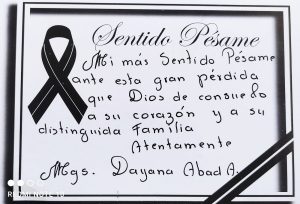 Sentido Pésame
Mi más Sentido Pésame
ante esta gran pérdida
que Dios de consuelo
a su corazón y a su
distinguida Familia
Atentamente
Mgs. Dayana Abad A.
REDMI NOTE 10